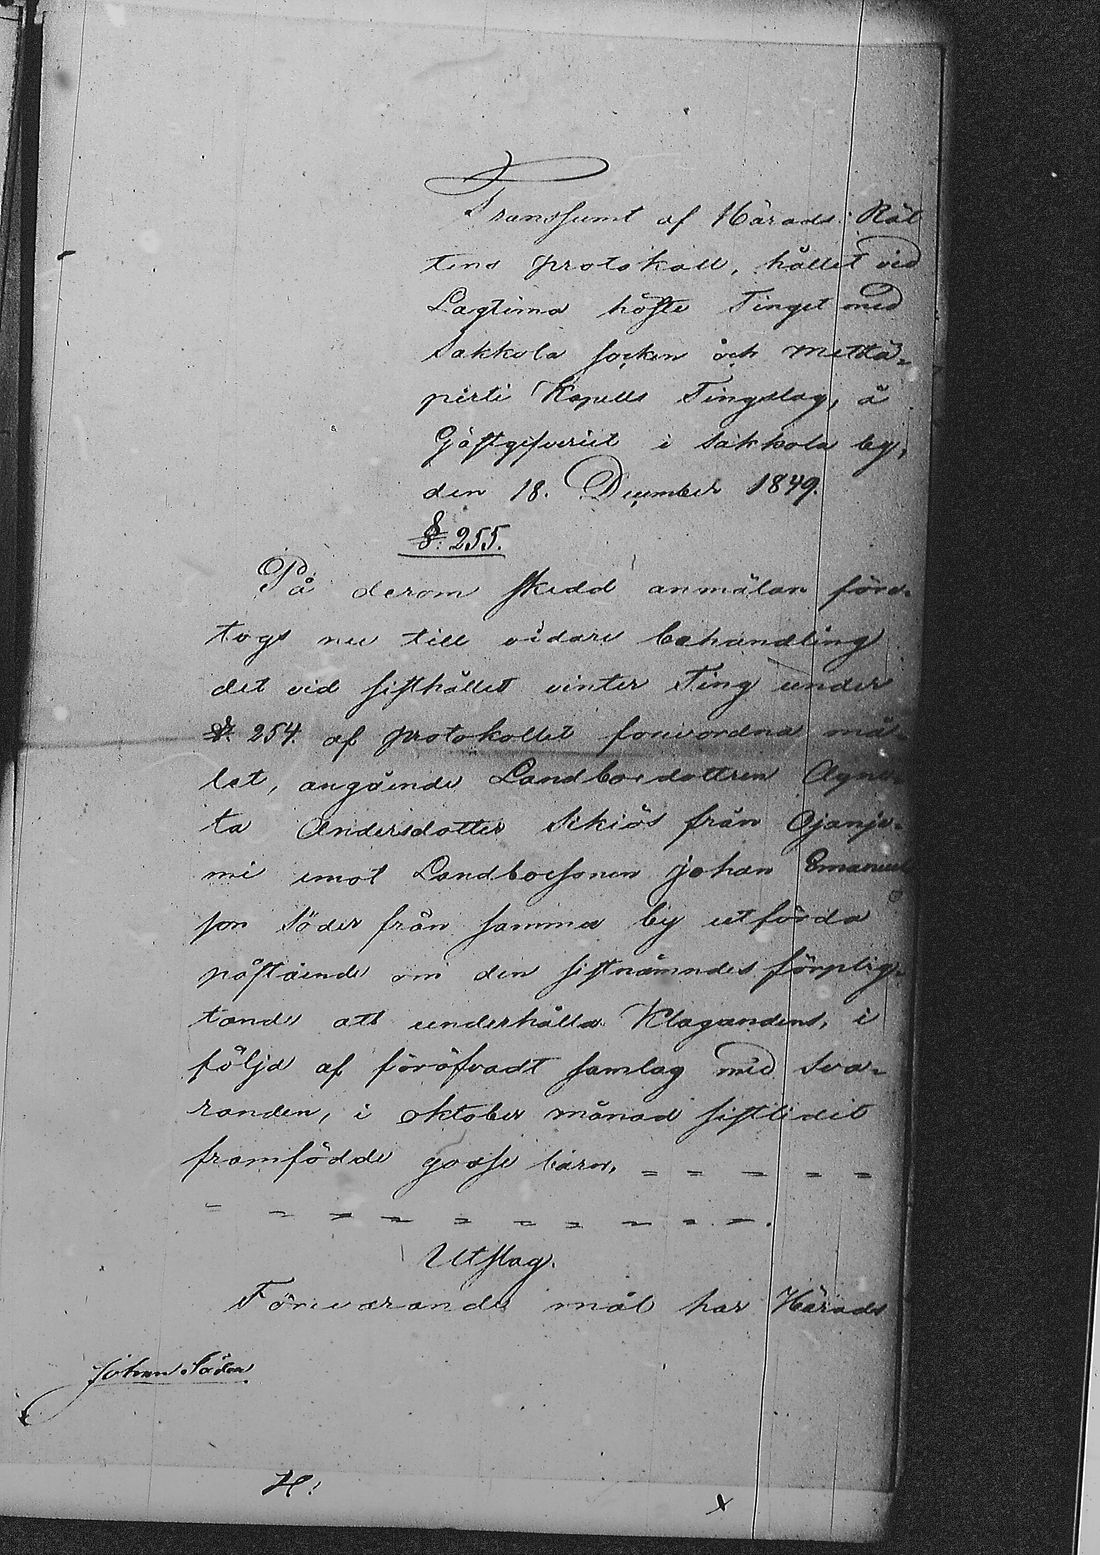 Transsumt af Härads Rät
tens protokoll, hållet vid
Lagtima höste Tinget med
Sakkola socken och Metsä-
pirti Kapells Tingslag, å
Gästgifveriet i Sakkola by,
den 18. December 1849.
§. 255.
På derom skedd anmälan före-
togs nu till vidare behandling
det vid sisthållet vinter Ting under
§. 254. af protokollet förevordna må-
let, angående Landboedottren Agne-
ta Andersdotter Sikiös från
mi emot Landboesonen Johan Emanuels
son Söder från samma by utförda
påstående om den sistnämndes förplig-
tande att underhålla Klagandens, i
följd af föröfvadt samlag med Sva-
randen, i oktober månad sistlidit
framfödde gosse barn, = = = = =
= = = = = = = = =.
Utslag.
Förevarande mål har Härads
Johan Söder
H!
x